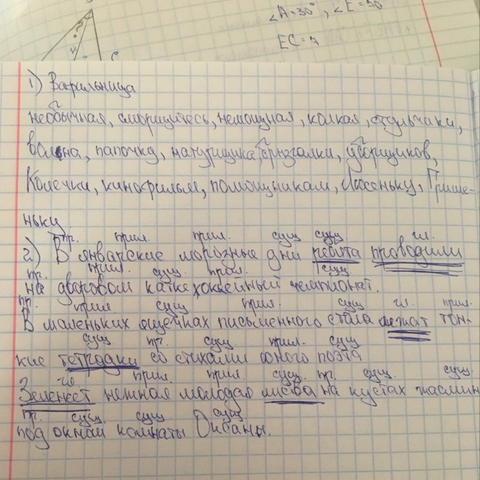 ∠A=30°, ∠E=30
EC=?
C
1) Вафильница
необычная, сморщитесь, немощная, колкая, стульчики,
волна, папочка, натурщика, грызалки, уборщиков,
Колечки, кинофильм, помощникам, Люсеньку, Грише-
ньку
пр. прил. прил. сущ сущ гл.
2) В январские морозные дни ребята проводили
пр. прил. сущ. прил. сущ
на дворовом катке хоккейный чемпионат.
пр. прил сущ прил. сущ гл. прил.
В маленьких ящечках письменного стола лежат тон-
сущ пр. сущ прил. сущ
кие тетрадки со стихами юного поэта
гл. прил. прил сущ. пр. сущ. сущ.
Зеленеет нежная молодая листва на кустах жасмин
пр сущ. сущ сущ
под окном комнаты Оксаны.